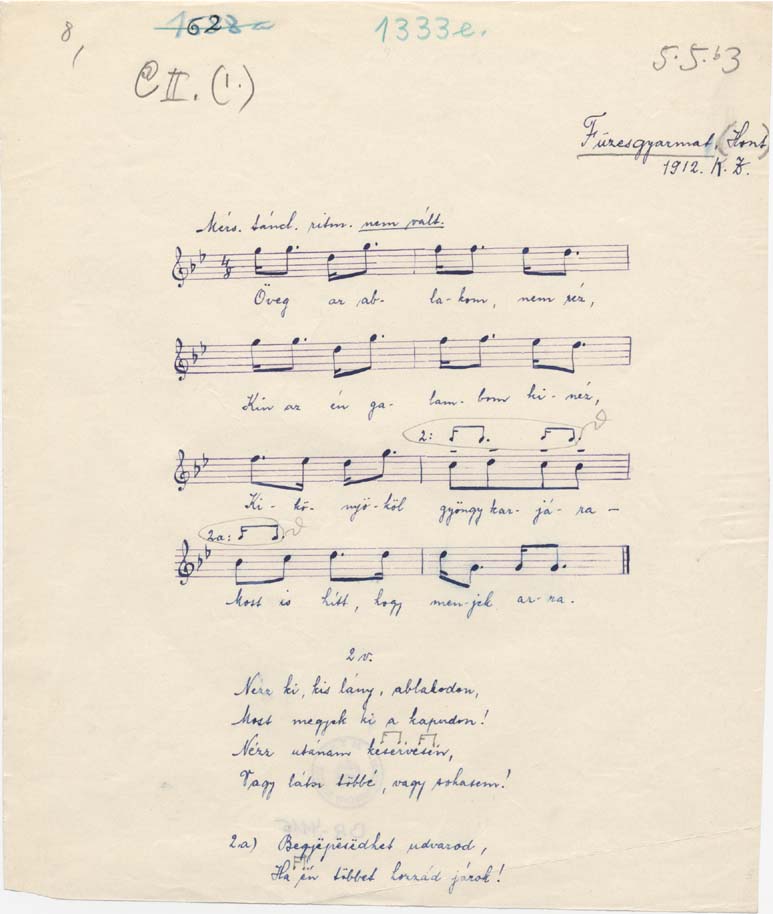 8,
1333e.
C II. (1.)
5.5.b3
Füzesgyarmat, (Hont)
1912. K. Z.
Mérs. táncl. ritm. nem vált.
4/8
Üveg az ab- la- kom, nem réz,
Kin az én ga- lam- bom ki- néz,
2:
Ki- kö- nyö- köl gyöngykar- já- ra –
2a:
Most is hítt, hogy men- jek ar- ra.
2 v.
Nézz ki, kis lány, ablakodon,
Most megyek ki a kapudon!
Nézz utánam keservesën,
Vagy látsz többé, vagy sohasem!
2.a) Begyëpësëdhet udvarod,
Ha ën többet hozzád járok!